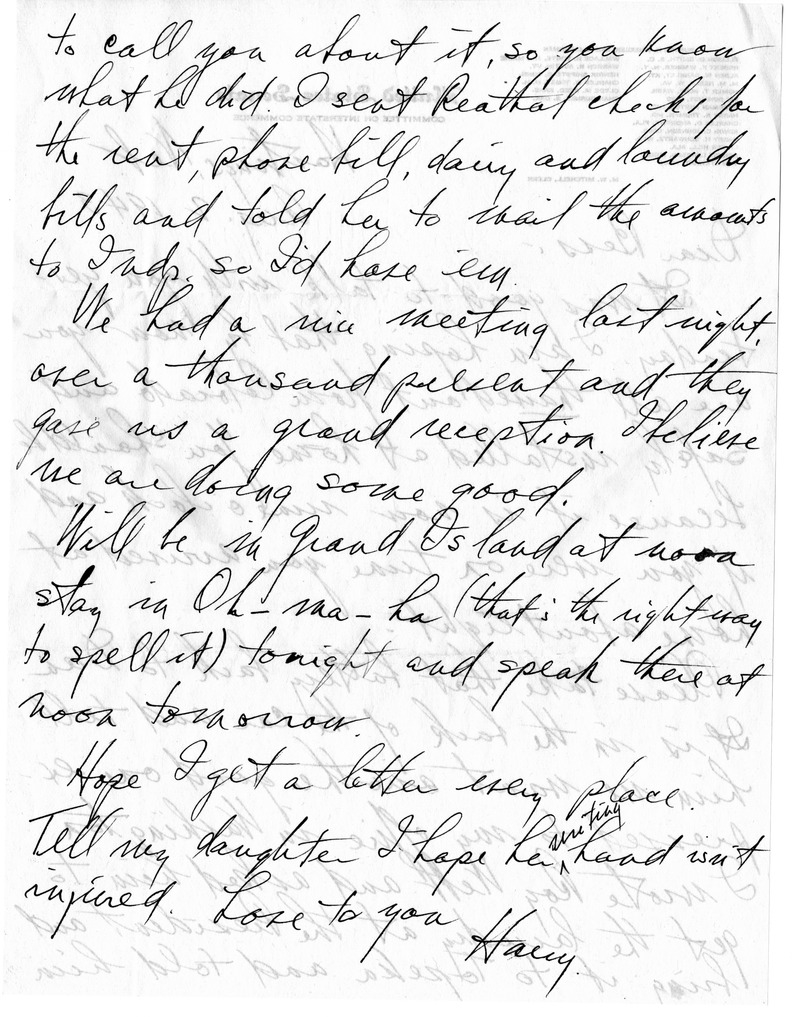 to call you about it, so you know
what he did. I sent Reathal checks for
the rent, phone bill, dairy and laundry
bills and told her to mail the amounts
to Indp. so I'd have 'em.
We had a nice meeting last night,
over a thousand present and they
gave us a grand reception. I believe
we are doing some good.
Will be in Grand Island at noon
stay in Oh-ma-ha (that's the right way
to spell it) tonight and speak there at
noon tomorrow.
Hope I get a letter every place.
Tell my daughter I hope her writing hand isn't
injured. Love to you
Harry.